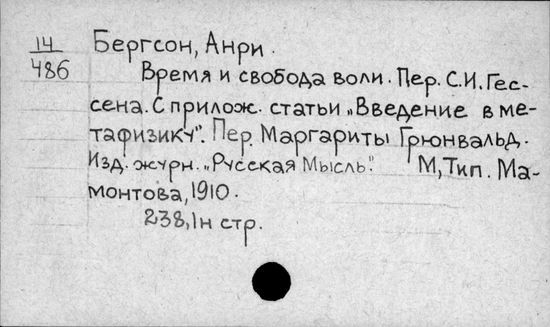 14
486
Бергсон, Анри.
Время и свобода воли. Пер. С.И. Гес-
сена. С прилож. статьи „Введение в ме-
тафизику". Пер. Маргариты Грюнвальд.
Изд. журн. „Русская Мысль". М, Тип. Ма-
монтова, 1910.
238, 1н стр.